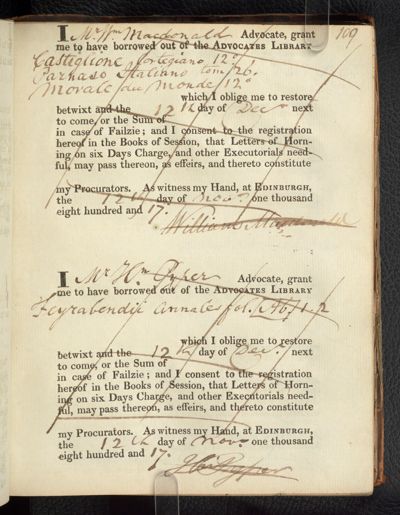 109
I Mr Wm Macdonald Advocate, grant
me to have borrowed out of the ADVOCATES LIBRARY
Castiglione Cortegiano 12o
Parnaso Italiano tom. 26.
Morale du Monde 12o
which I oblige me to restore
betwixt and the 12th day of Decr next
to come, or the Sum of
in case of Failzie; and I consent to the registration
hereof in the Books of Session, that Letters of Horn-
ing on six Days Charge, and other Executorials need-
ful, may pass thereon, as effeirs, and thereto constitute
my Procurators. As witness my Hand, at EDINBURGH,
the 12th day of Novr one thousand
eight hundred and 17.
William Macdonald
I Mr Wm Advocate, grant
me to have borrowed out of the ADVOCATES LIBRARY
Feyrabendii Annales fol. 1-2
which I oblige me to restore
betwixt and the 12th day of Decr next
to come, or the Sum of
in case of Failzie; and I consent to the registration
hereof in the Books of Session, that Letters of Horn-
ing on six Days Charge, and other Executorials need-
ful, may pass thereon, as effeirs, and thereto constitute
my Procurators. As witness my Hand, at EDINBURGH,
the 12th day of Novr one thousand
eight hundred and 17.